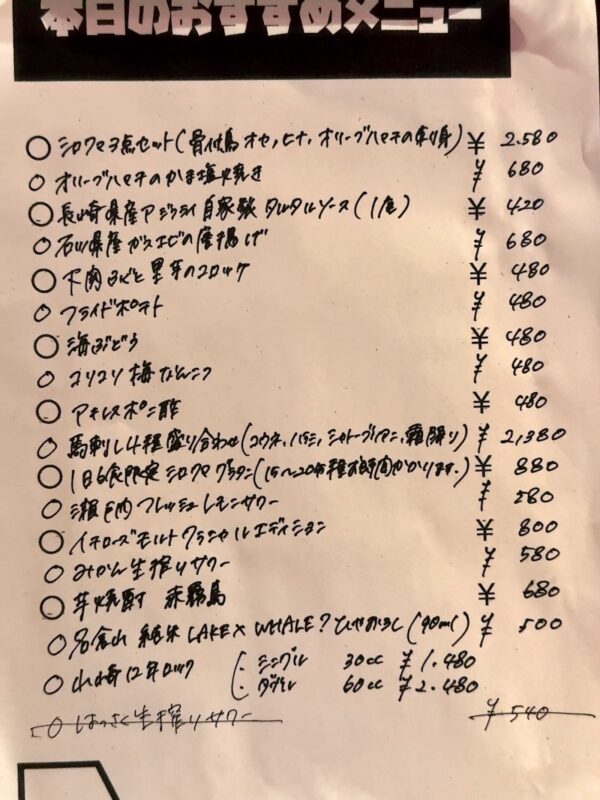 本日のおすすめメニュー
○シロクマ3点セット(骨付鳥オヤ、ヒナ、オリーブハマチの刺身) ¥2.580
○オリーブハマチのかま塩焼き ¥680
○長崎県産アジフライ自家製タルタルソース(1尾) ¥420
○石川県産ガスエビの唐揚げ ¥680
○下関ふぐと里芋のコロッケ ¥480
○フライドポテト ¥480
○海ぶどう ¥480
○コリコリ梅なんこつ ¥480
○アキレスポン酢 ¥480
○馬刺し4種盛り合わせ(コウネ、ハラミ、シャトーブリアン、霜降り) ¥2,380
○1日6食限定シロクマグラタン(15〜20分程お時間かかります.) ¥880
○瀬戸内フレッシュレモンサワー ¥580
○イチローズモルト クラシカルエディション ¥800
○みかん生搾りサワー ¥580
○芋焼酎 赤霧島 ¥680
○名倉山 純米 LAKE×WHALE? ひやおろし(90ml) ¥500
○山崎12年ロック (・シングル 30cc ¥1.480
・ダブル 60cc ¥2.480
○はっさく生搾りサワー ¥540